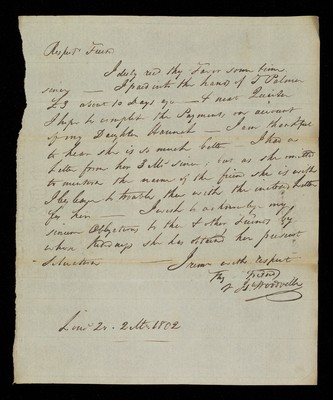 Respectd Friend
I duly recd thy Favor some time
since — I paid into the hands of T Palmer
£3 about 10 Days ago — & next Quarter
I hope to complete the Payment on account
of my Daughter Hannah — I am thankful
to hear she is so much better I had a
letter from her 3 Mo since, but as she omitted
to mention the name of the friend she is with
I beg leave to trouble thee with the inclosed letter
for her — I wish to acknowledge my
sincere Obligations to thee & other Friends by
whose kindness she has obtained her present
situation — I remain with respect
Thy Friend
Jos Woodville
2d - 2 Mo 1802